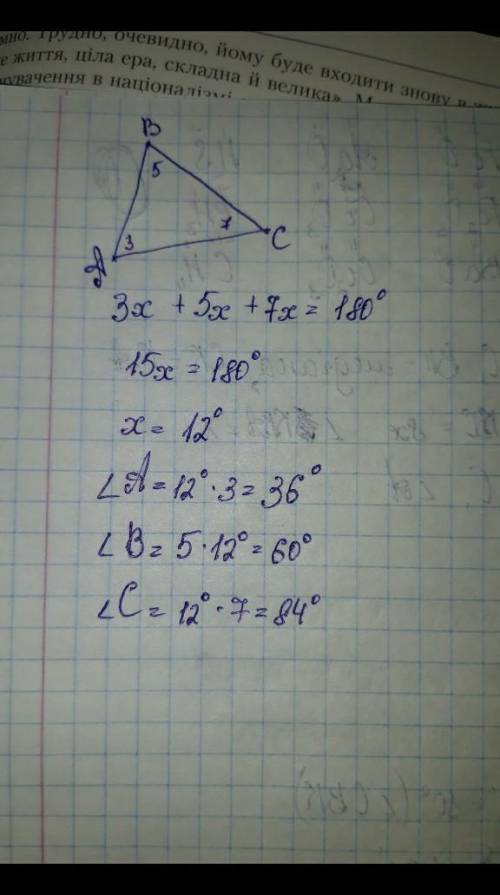 очевидно, йому буде входити знову в
життя, ціла ера, складна й велика».
в націоналізмі
B
5
3
7
A
C
3x + 5x + 7x = 180°
15x = 180°
x = 12°
∠A = 12° · 3 = 36°
∠B = 5 · 12° = 60°
∠C = 12° · 7 = 84°